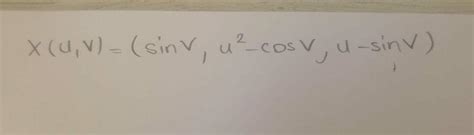 X(u,v)=(sinv, u²-cosv, u-sinv)